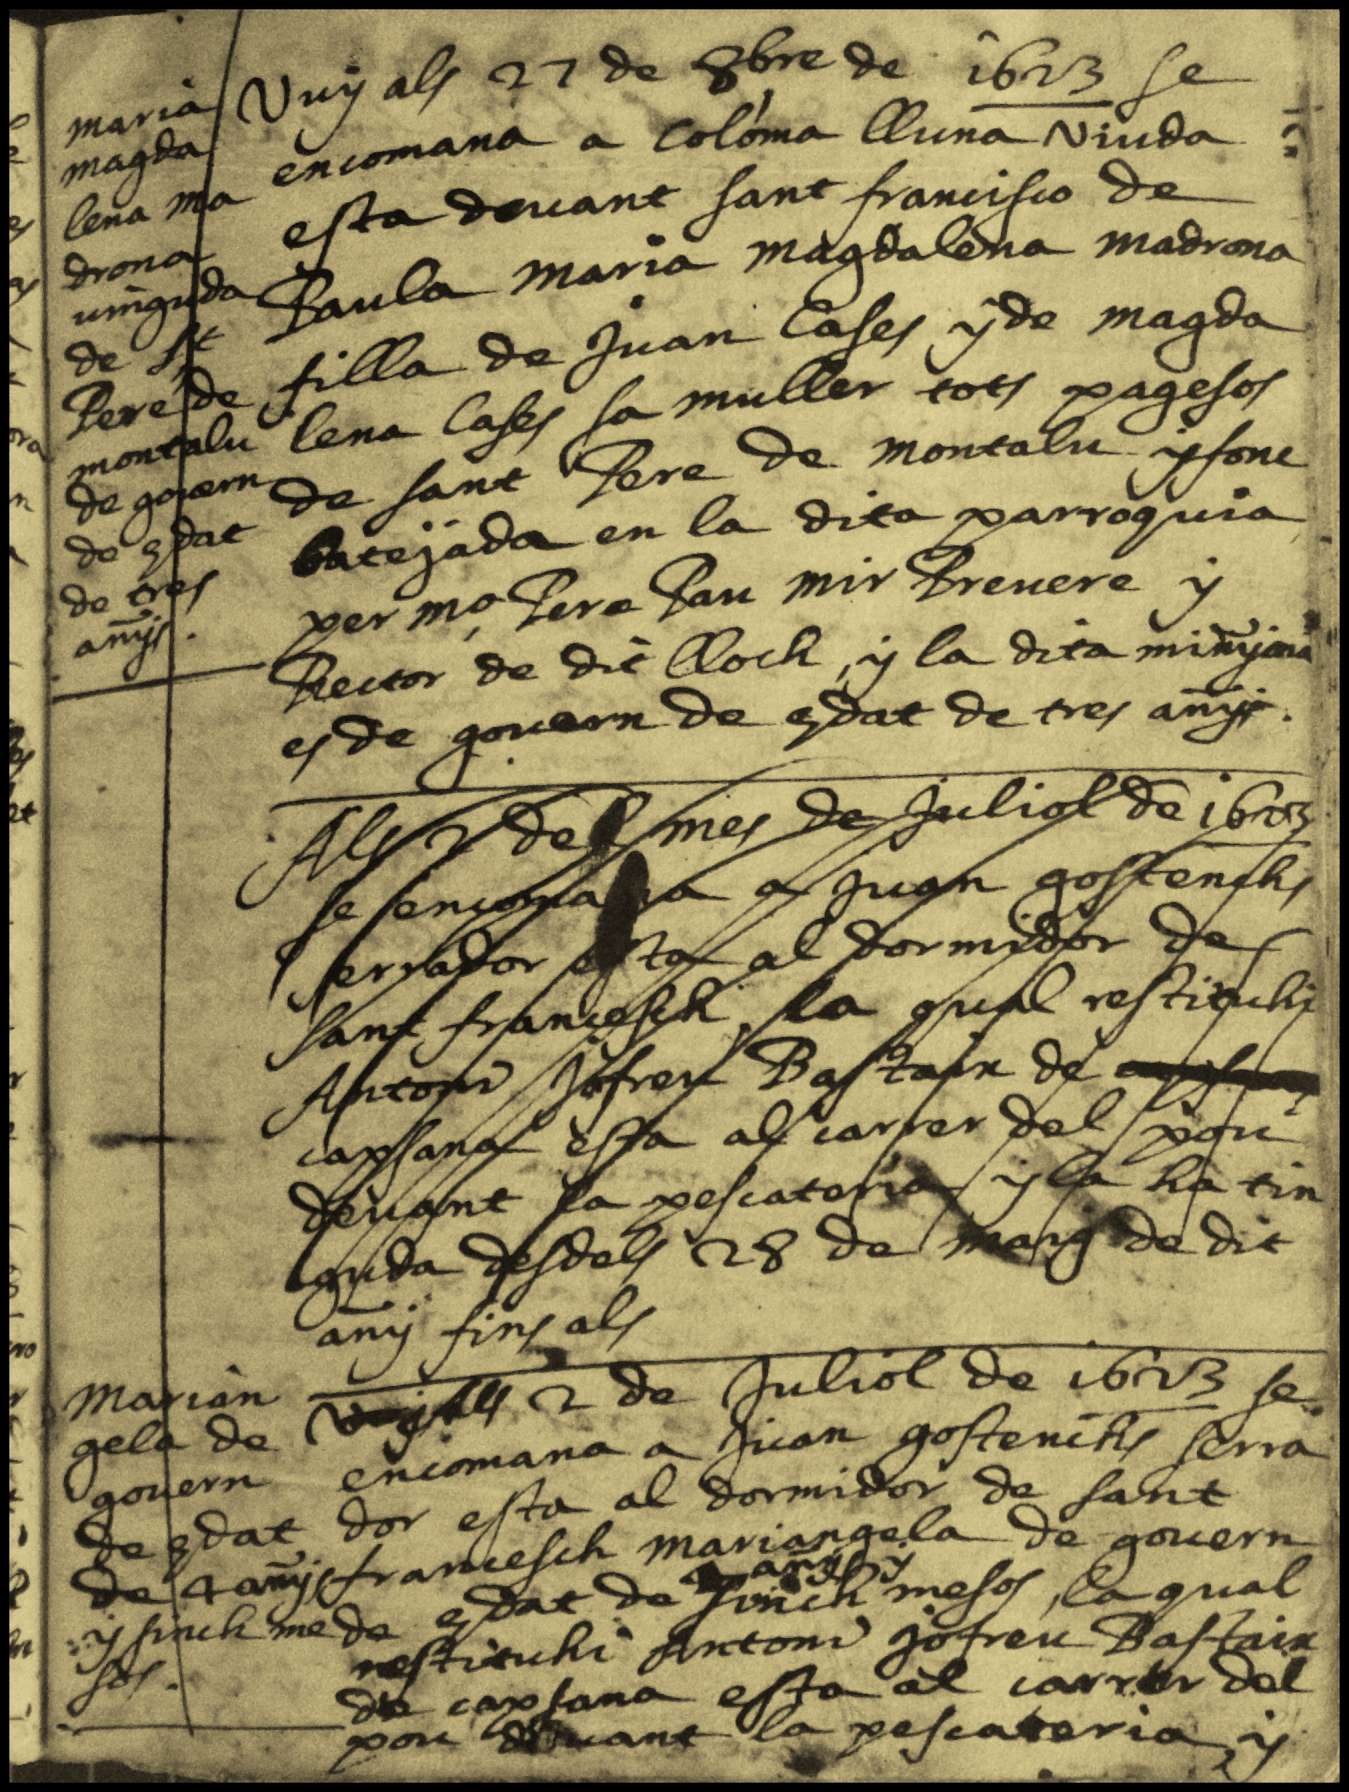 maria
magda
lena ma
drona
uinguda
de St
Pere de
montalu
de gouern
de edat
de tres
añys.
Vuy als 27 de 8bre de 1623 se
encomana a colóma lluna Viuda
esta deuant sant francisco de
Paula maria magdalena madrona
filla de Juan Cases y de magda
lena Cases sa muller tots pagesos
de sant Pere de montalu y fonc
batejada en la dita parroquia
per mo Pere Pau mir Preuere y
Rector de dit lloch, y la dita minyona
es de gouern de edat de tres añys.
Als 2 del mes de Juliol de 1623
se encomana a Juan gostenchs
serrador esta al dormidor de
sant francesch, la qual restituhi
Antoni Jofreu Bastaix de
capsana esta al carrer del pou
deuant la pescateria y la ha tin
guda desdels 28 de mars de dit
añy fins als
Marian
gela de
gouern
de edat
de 4 añys
y sinch me
sos.
Vuy als 2 de Juliol de 1623 se
encomana a Juan gostenchs serra
dor esta al dormidor de sant
francesch mariangela de gouern
de edat de 4 anys y sinch mesos, la qual
restituhi Antoni Jofreu Bastaix
de capsana esta al carrer del
pou deuant la pescateria, y